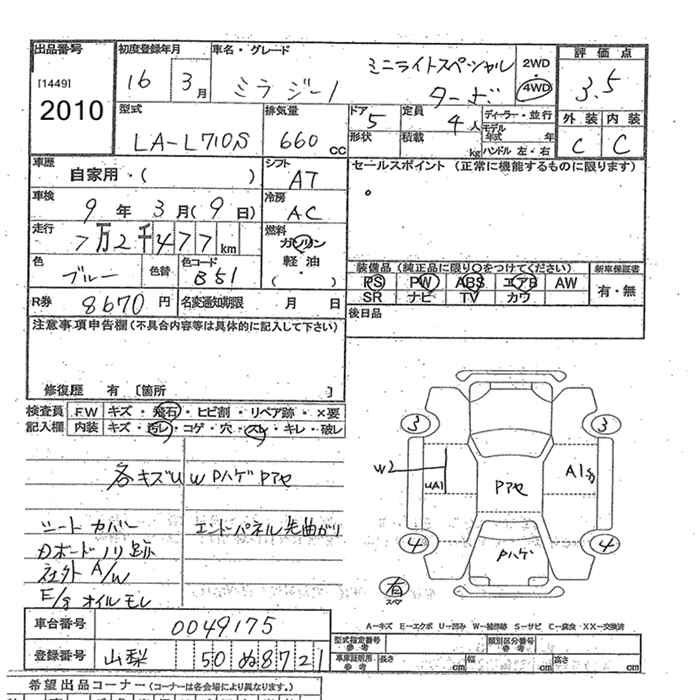 出品番号 初度登録年月 車名・グレード 2WD 評価点
[1449] 16 3月 ミラジーノ ミニライトスペシャル ターボ 4WD 3.5
2010
型式 排気量 ドア 定員 ディーラー・並行 外装 内装
LA-L710S 660cc 5 4人 モデル年式 年 C C
形状 積載 kg ハンドル 左・右
車歴 シフト セールスポイント(正常に機能するものに限ります)
自家用・( ) AT
車検 冷房
9年3月(9日) AC
走行 燃料
7万2千477km ガソリン
軽油
( )
色 色替 色コード 装備品(純正品に限り〇をつけてください) 新車保証書
ブルー B51 PS PW ABS エアB AW 有・無
SR ナビ TV カワ
R券 8670円 名変通知期限 月 日 後日品
注意事項申告欄(不具合内容等は具体的に記入して下さい)
修復歴 有 [箇所 ]
検査員 FW キズ・飛石・ヒビ割・リペア跡・×要
記入欄 内装 キズ・汚レ・コゲ・穴・スレ・キレ・破レ
各キズUW Pハゲ Pアセ
シートカバー エンドパネル先曲がり
Dボードノリ跡
社外A/W
E/gオイルモレ
3 3
W2 UA1 Pアセ A1
4 Pハゲ 4
有
スペア
A-キズ E-エクボ U-凹み W-補修跡 S-サビ C-腐食 XX-交換済
車台番号 0049175
型式指定番号 参考 類別区分番号 参考
登録番号 山梨 50 ぬ 8721
車庫証明用 参考 長さ cm 幅 cm 高さ cm
希望出品コーナー(コーナーは各会場により異なります。)